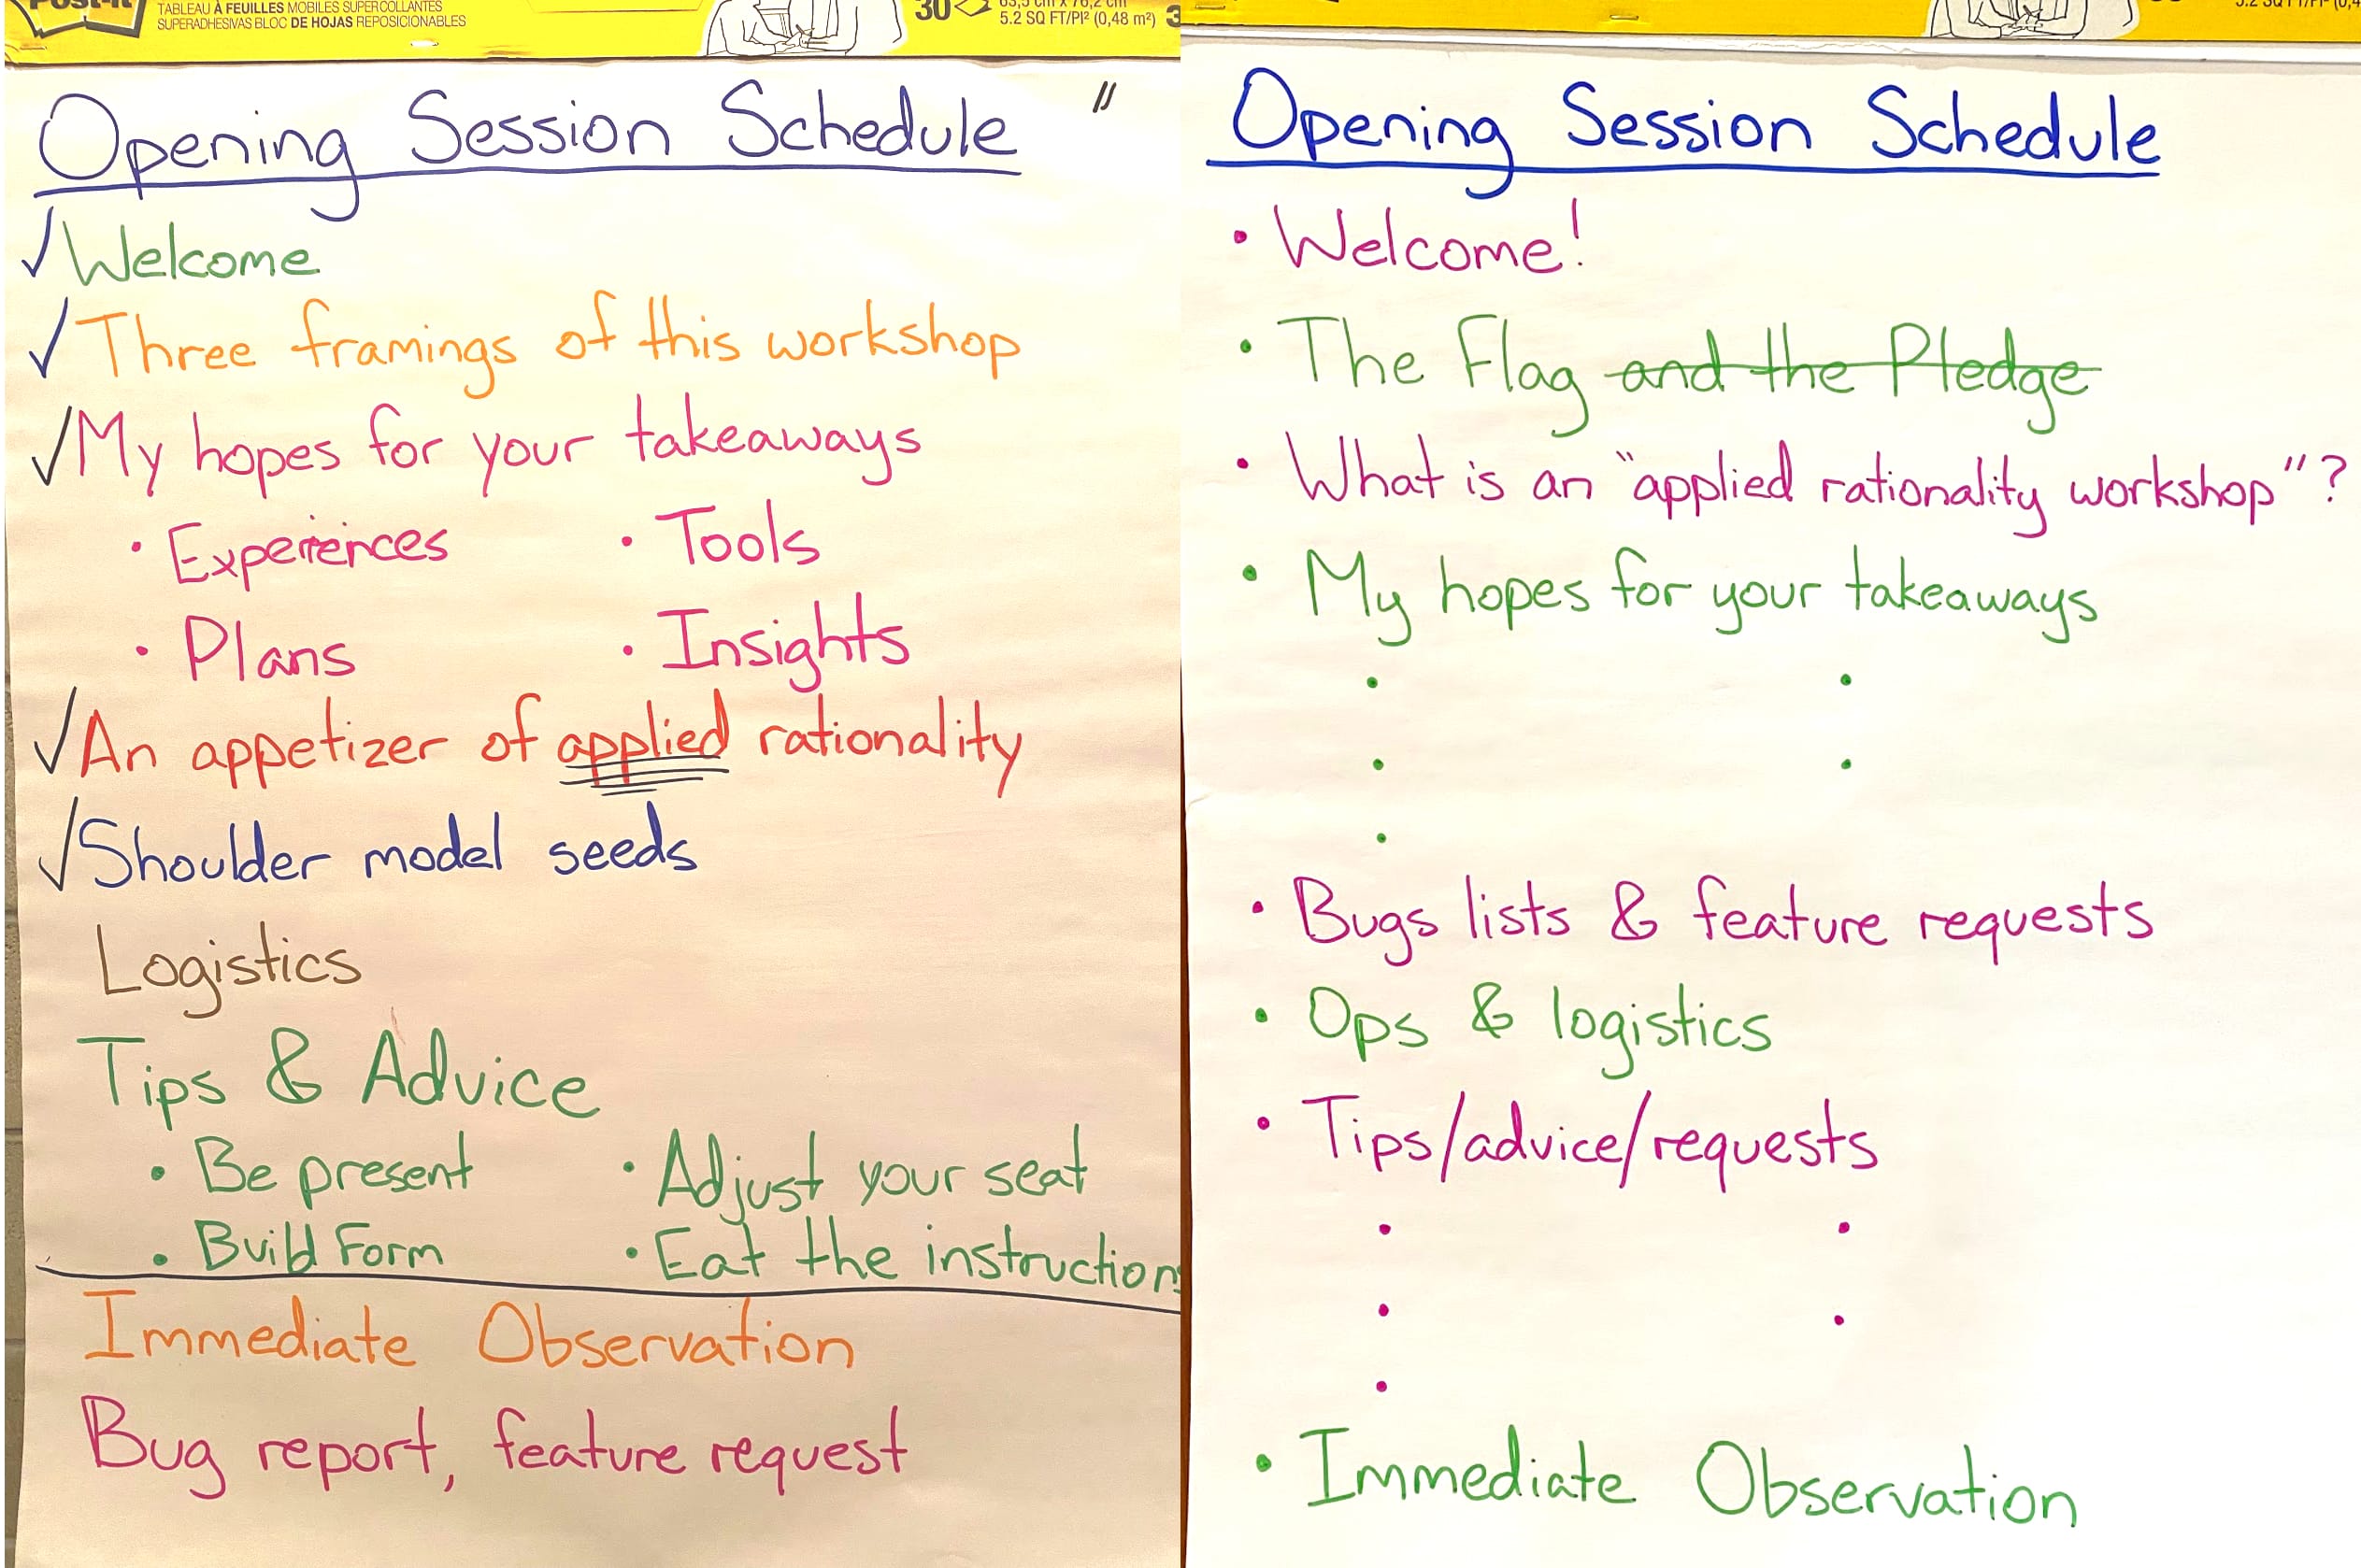 Post-it
TABLEAU À FEUILLES MOBILES SUPERCOLLANTES
SUPERADHESIVAS BLOC DE HOJAS REPOSICIONABLES
30
63,5 cm x 76,2 cm
5.2 SQ FT/PI² (0,48 m²)
Opening Session Schedule
✓ Welcome
✓ Three framings of this workshop
✓ My hopes for your takeaways
• Experiences • Tools
• Plans • Insights
✓ An appetizer of applied rationality
✓ Shoulder model seeds
Logistics
Tips & Advice
• Be present • Adjust your seat
• Build Form • Eat the instructions
Immediate Observation
Bug report, feature request
Opening Session Schedule
• Welcome!
• The Flag and the Pledge
• What is an "applied rationality workshop"?
• My hopes for your takeaways
• Bugs lists & feature requests
• Ops & logistics
• Tips/advice/requests
• Immediate Observation